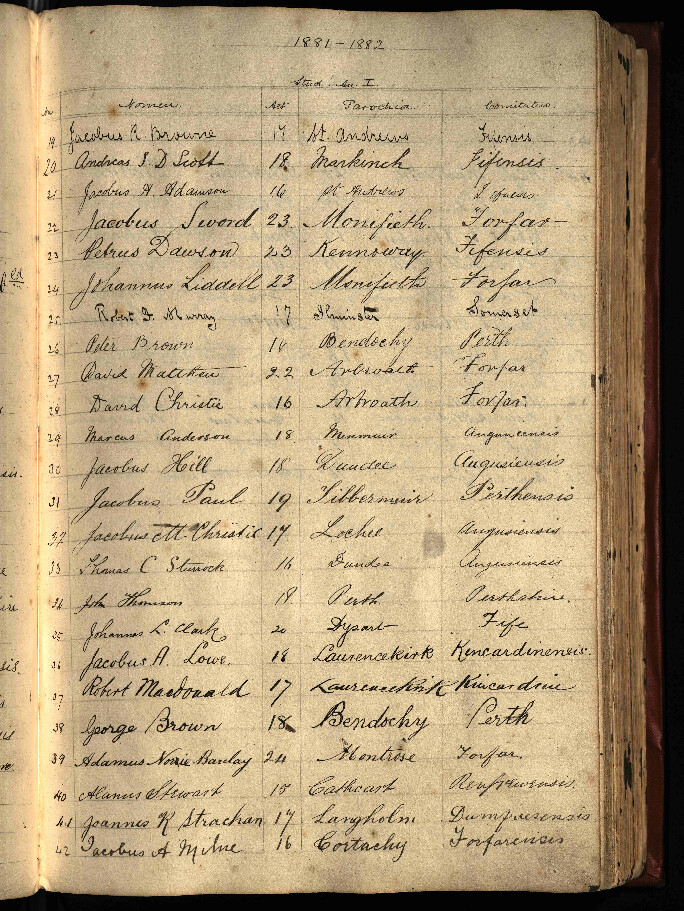 1881-1882
Stud I.
No Nomen. Aet Parochia. Comitatus.
19 Jacobus R Browne 17 St. Andrews Fifensis
20 Andreas J. D Scott 18 Markinch Fifensis.
21 Jacobus A. Adamson 16 St. Andrews
22 Jacobus Sword 23 Monifieth. Forfar
23 Petrus Dawson 23 Kennoway. Fifensis
24 Johannus Liddell 23 Monifieth Forfar
25 Robert F. Murray 17 Ilminster Somerset
26 Peter Brown 16 Bendochy Perth
27 David Matthew 22 Arbroath Forfar
28 David Christie 16 Arbroath Forfar.
29 Marcus Anderson 18. Menmuir
30 Jacobus Hill 18 Dundee Angusiensis
31 Jacobus Paul 19 Tibbermuir Perthensis
32 Jacobus M. Christie 17 Lochee Angusiensis
33 Thomas C Sturrock 16 Dundee Angusiensis
34 John Thomson 18 Perth Perthshire.
35 Johannes L. Clark 20 Dysart Fife
36 Jacobus A. Lowe. 18 Laurencekirk Kincardinensis.
37 Robert Macdonald 17 Laurencekirk Kincardine
38 George Brown 18 Bendochy Perth
39 Adamus Norrie Barclay 24 Montrose Forfar.
40 Alanus Stewart 15 Cathcart Renfrewensis
41 Joannes K Strachan 17 Langholm Dumfriesensis
42 Jacobus A Milne 16 Cortachy Forfarensis